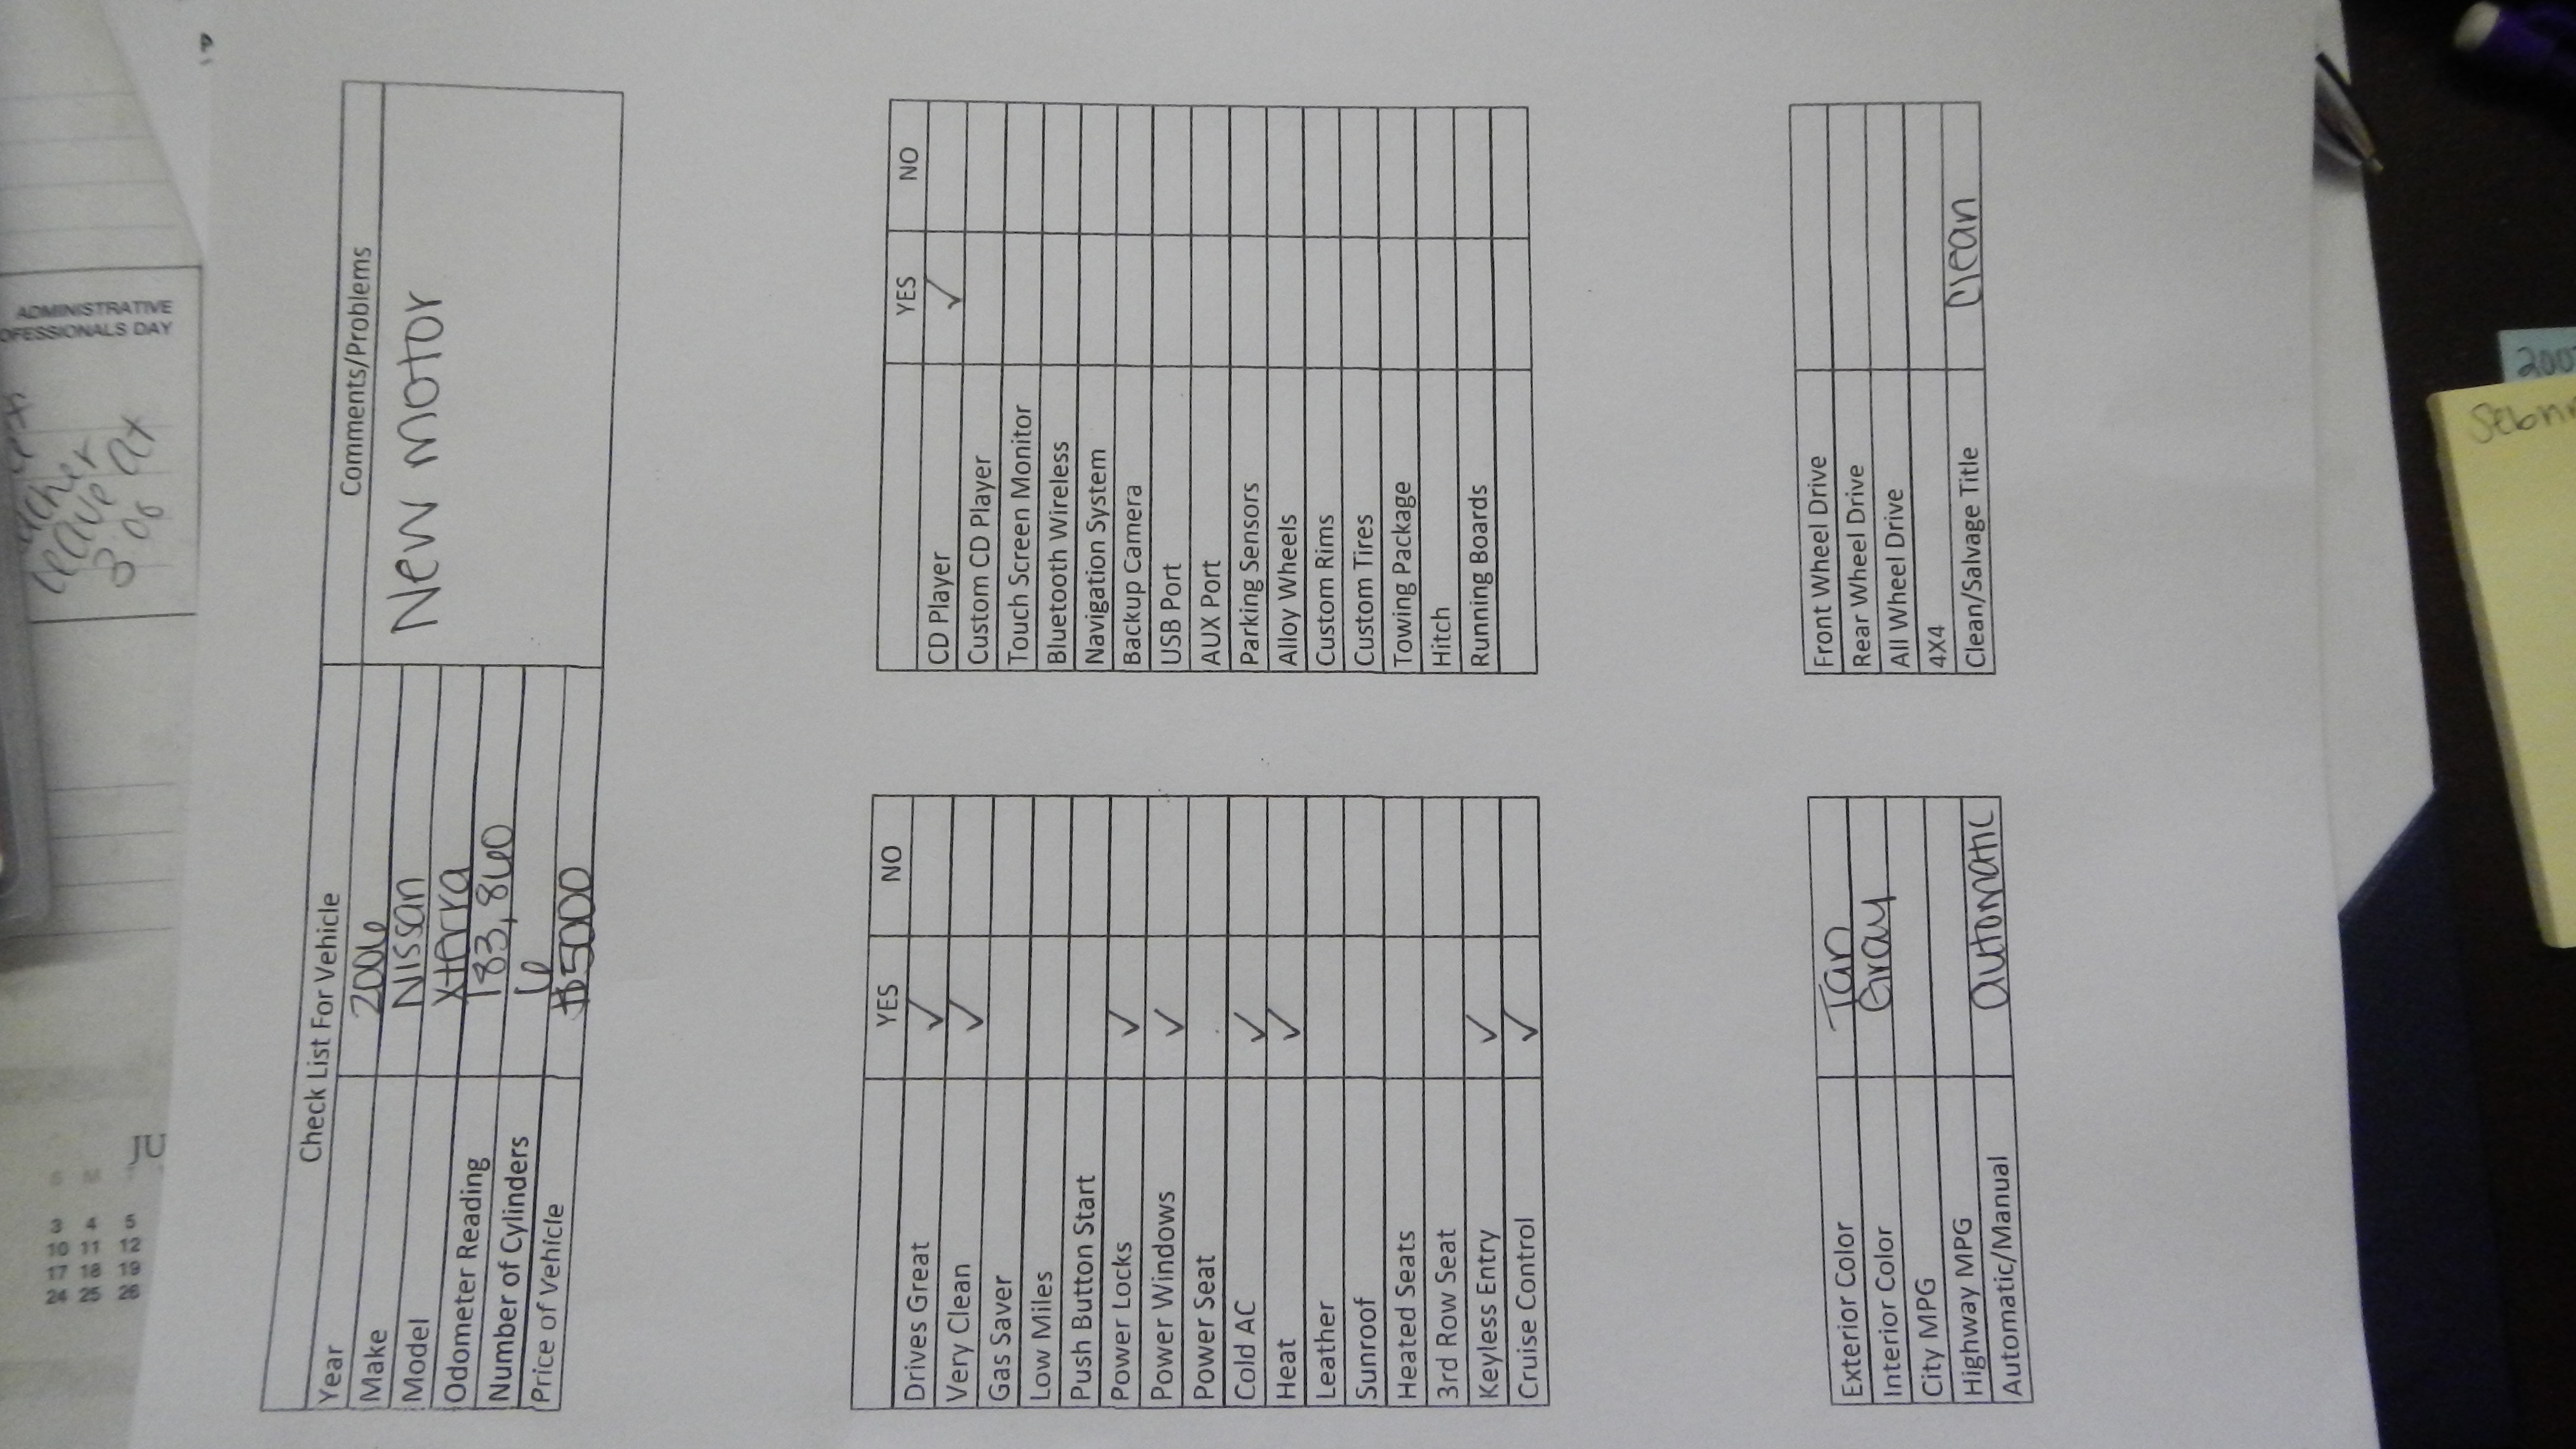 3 4 5
10 11 12
17 18 19
24 25 26
JU
leave at
3:00
ADMINISTRATIVE
PROFESSIONALS DAY
Check List For Vehicle
Comments/Problems
Year 2006
New motor
Make Nissan
Model Xterra
Odometer Reading 183,860
Number of Cylinders 6
Price of Vehicle $5000
YES NO
Drives Great ✓
Very Clean ✓
Gas Saver
Low Miles
Push Button Start
Power Locks ✓
Power Windows ✓
Power Seat
Cold AC ✓
Heat ✓
Leather
Sunroof
Heated Seats
3rd Row Seat
Keyless Entry ✓
Cruise Control ✓
YES NO
CD Player ✓
Custom CD Player
Touch Screen Monitor
Bluetooth Wireless
Navigation System
Backup Camera
USB Port
AUX Port
Parking Sensors
Alloy Wheels
Custom Rims
Custom Tires
Towing Package
Hitch
Running Boards
Exterior Color Tan
Interior Color Gray
City MPG
Highway MPG
Automatic/Manual automatic
Front Wheel Drive
Rear Wheel Drive
All Wheel Drive
4X4
Clean/Salvage Title Clean